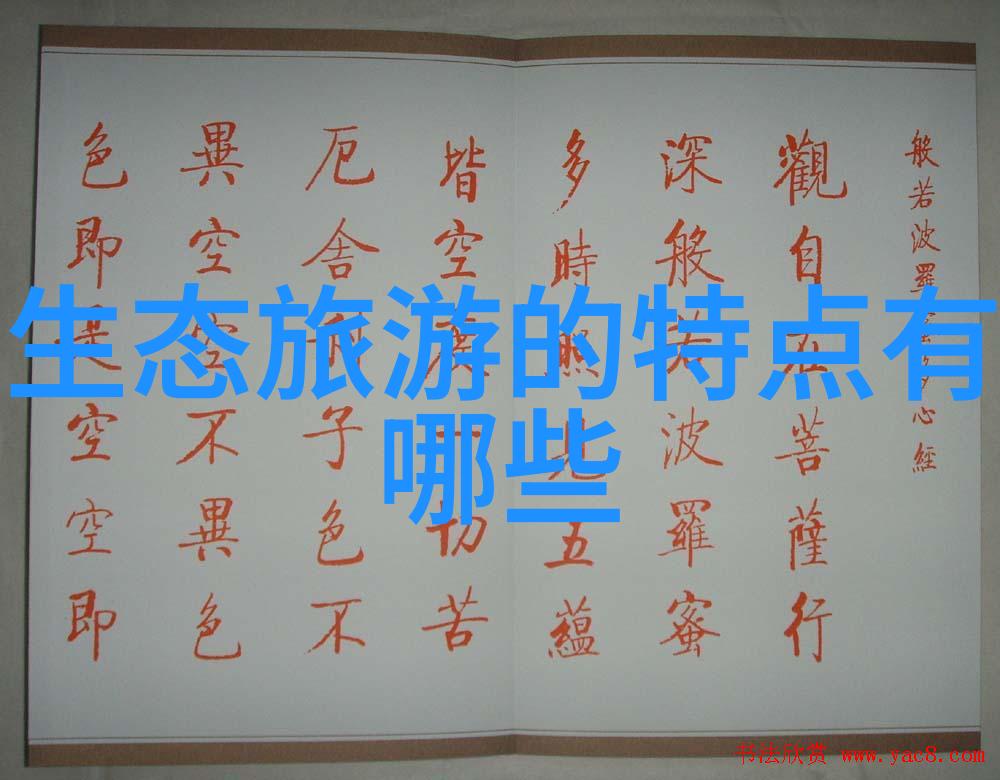 生态旅游的特点有
哪些
般若波羅蜜多心經
觀自在菩薩行
深般若波羅蜜
多時照見五蘊
皆空度一切苦
厄舍利子色不
異空空不異色
色即是空空即
书法欣赏 www.yac8.com